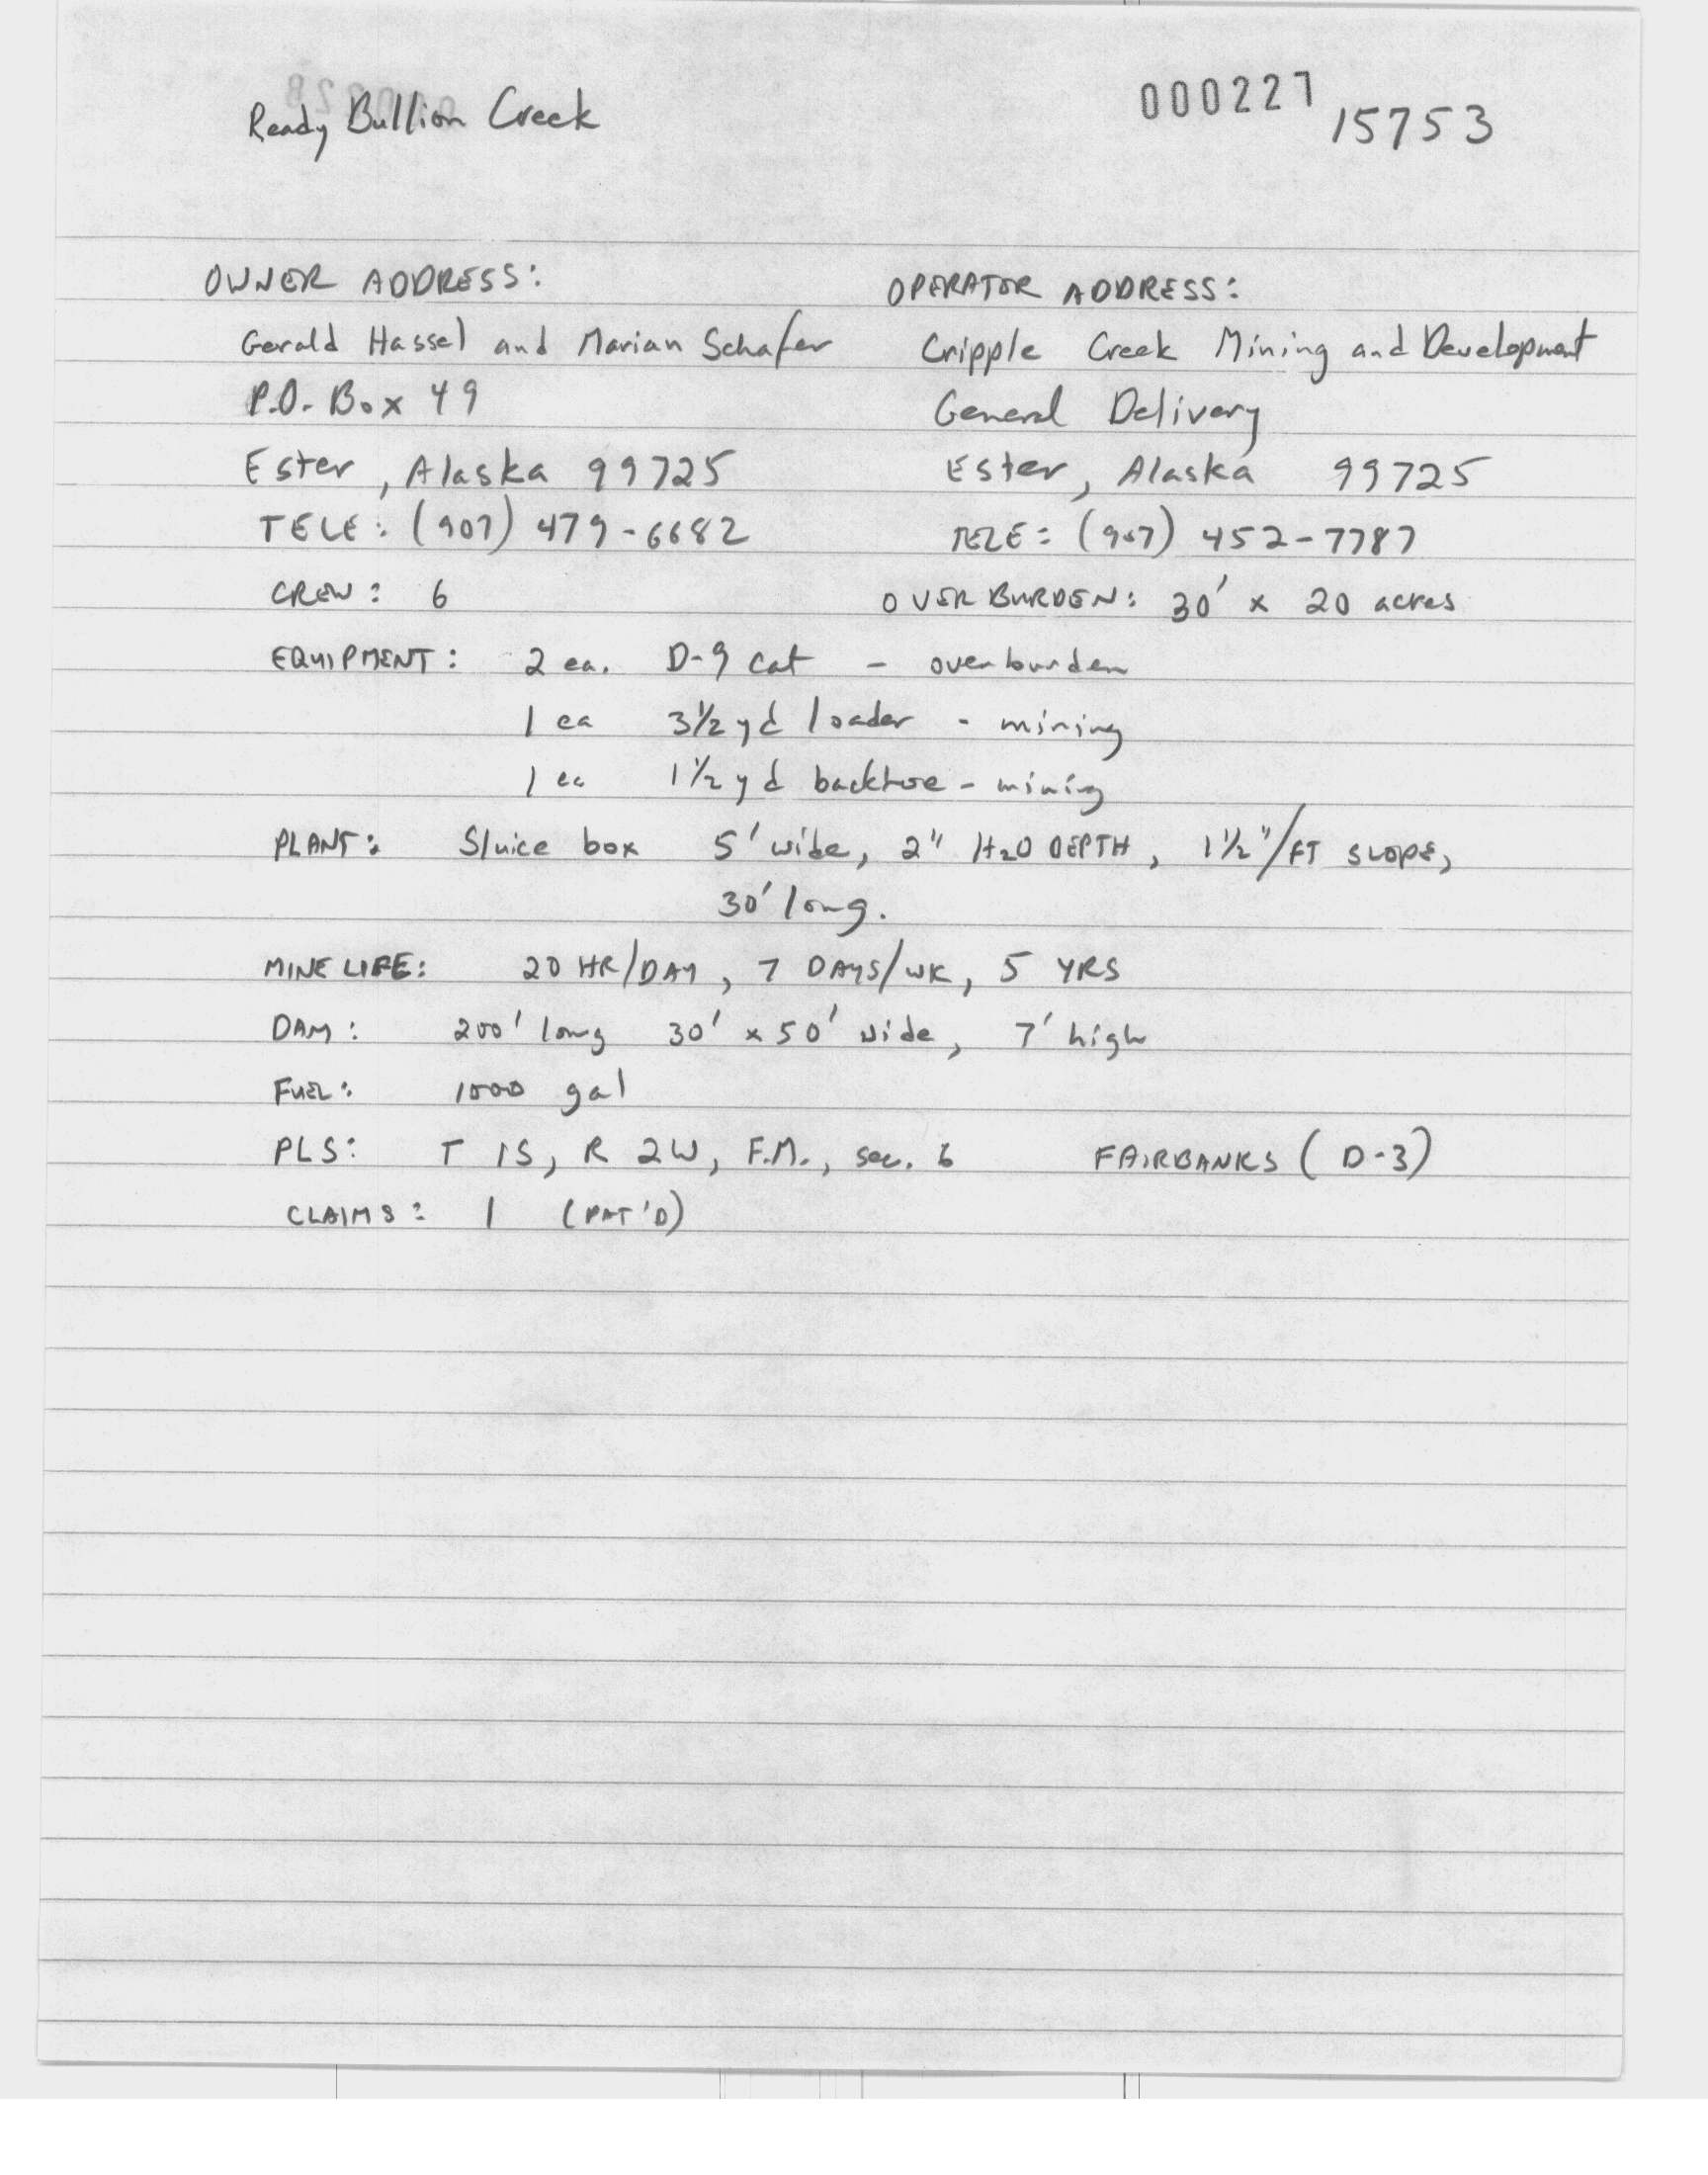 Ready Bullion Creek
000227
15753
OWNER ADDRESS:
Gerald Hassel and Marian Schafer
P.O. Box 49
Ester, Alaska 99725
TELE: (907) 479-6682
OPERATOR ADDRESS:
Cripple Creek Mining and Development
General Delivery
Ester, Alaska 99725
TELE: (907) 452-7787
CREW: 6
OVERBURDEN: 30' x 20 acres
EQUIPMENT: 2 ea. D-9 cat - overburden
1 ea 3½ yd loader - mining
1 ea 1½ yd backhoe - mining
PLANT: Sluice box 5' wide, 2" H2O DEPTH, 1½"/FT SLOPE,
30' long.
MINE LIFE: 20 HR/DAY, 7 DAYS/WK, 5 YRS
DAM: 200' long 30' x 50' wide, 7' high
FUEL: 1000 gal
PLS: T 1S, R 2W, F.M., sec. 6 FAIRBANKS (D-3)
CLAIMS: 1 (PAT'D)